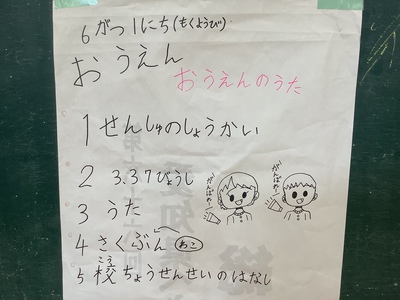 6がつ1にち(もくようび)
おうえん
おうえんのうた
1 せんしゅのしょうかい
2 3.3.7びょうし
がんばれー!
がんばれー!
3 うた
4 さくぶん
5 校ちょうせんせいのはなし
こう